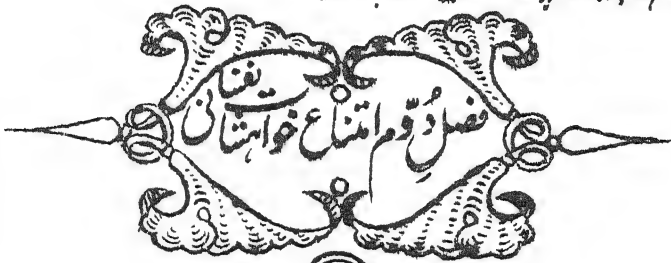 فصلِ دُوّم امتناع خواہشات نفسانی